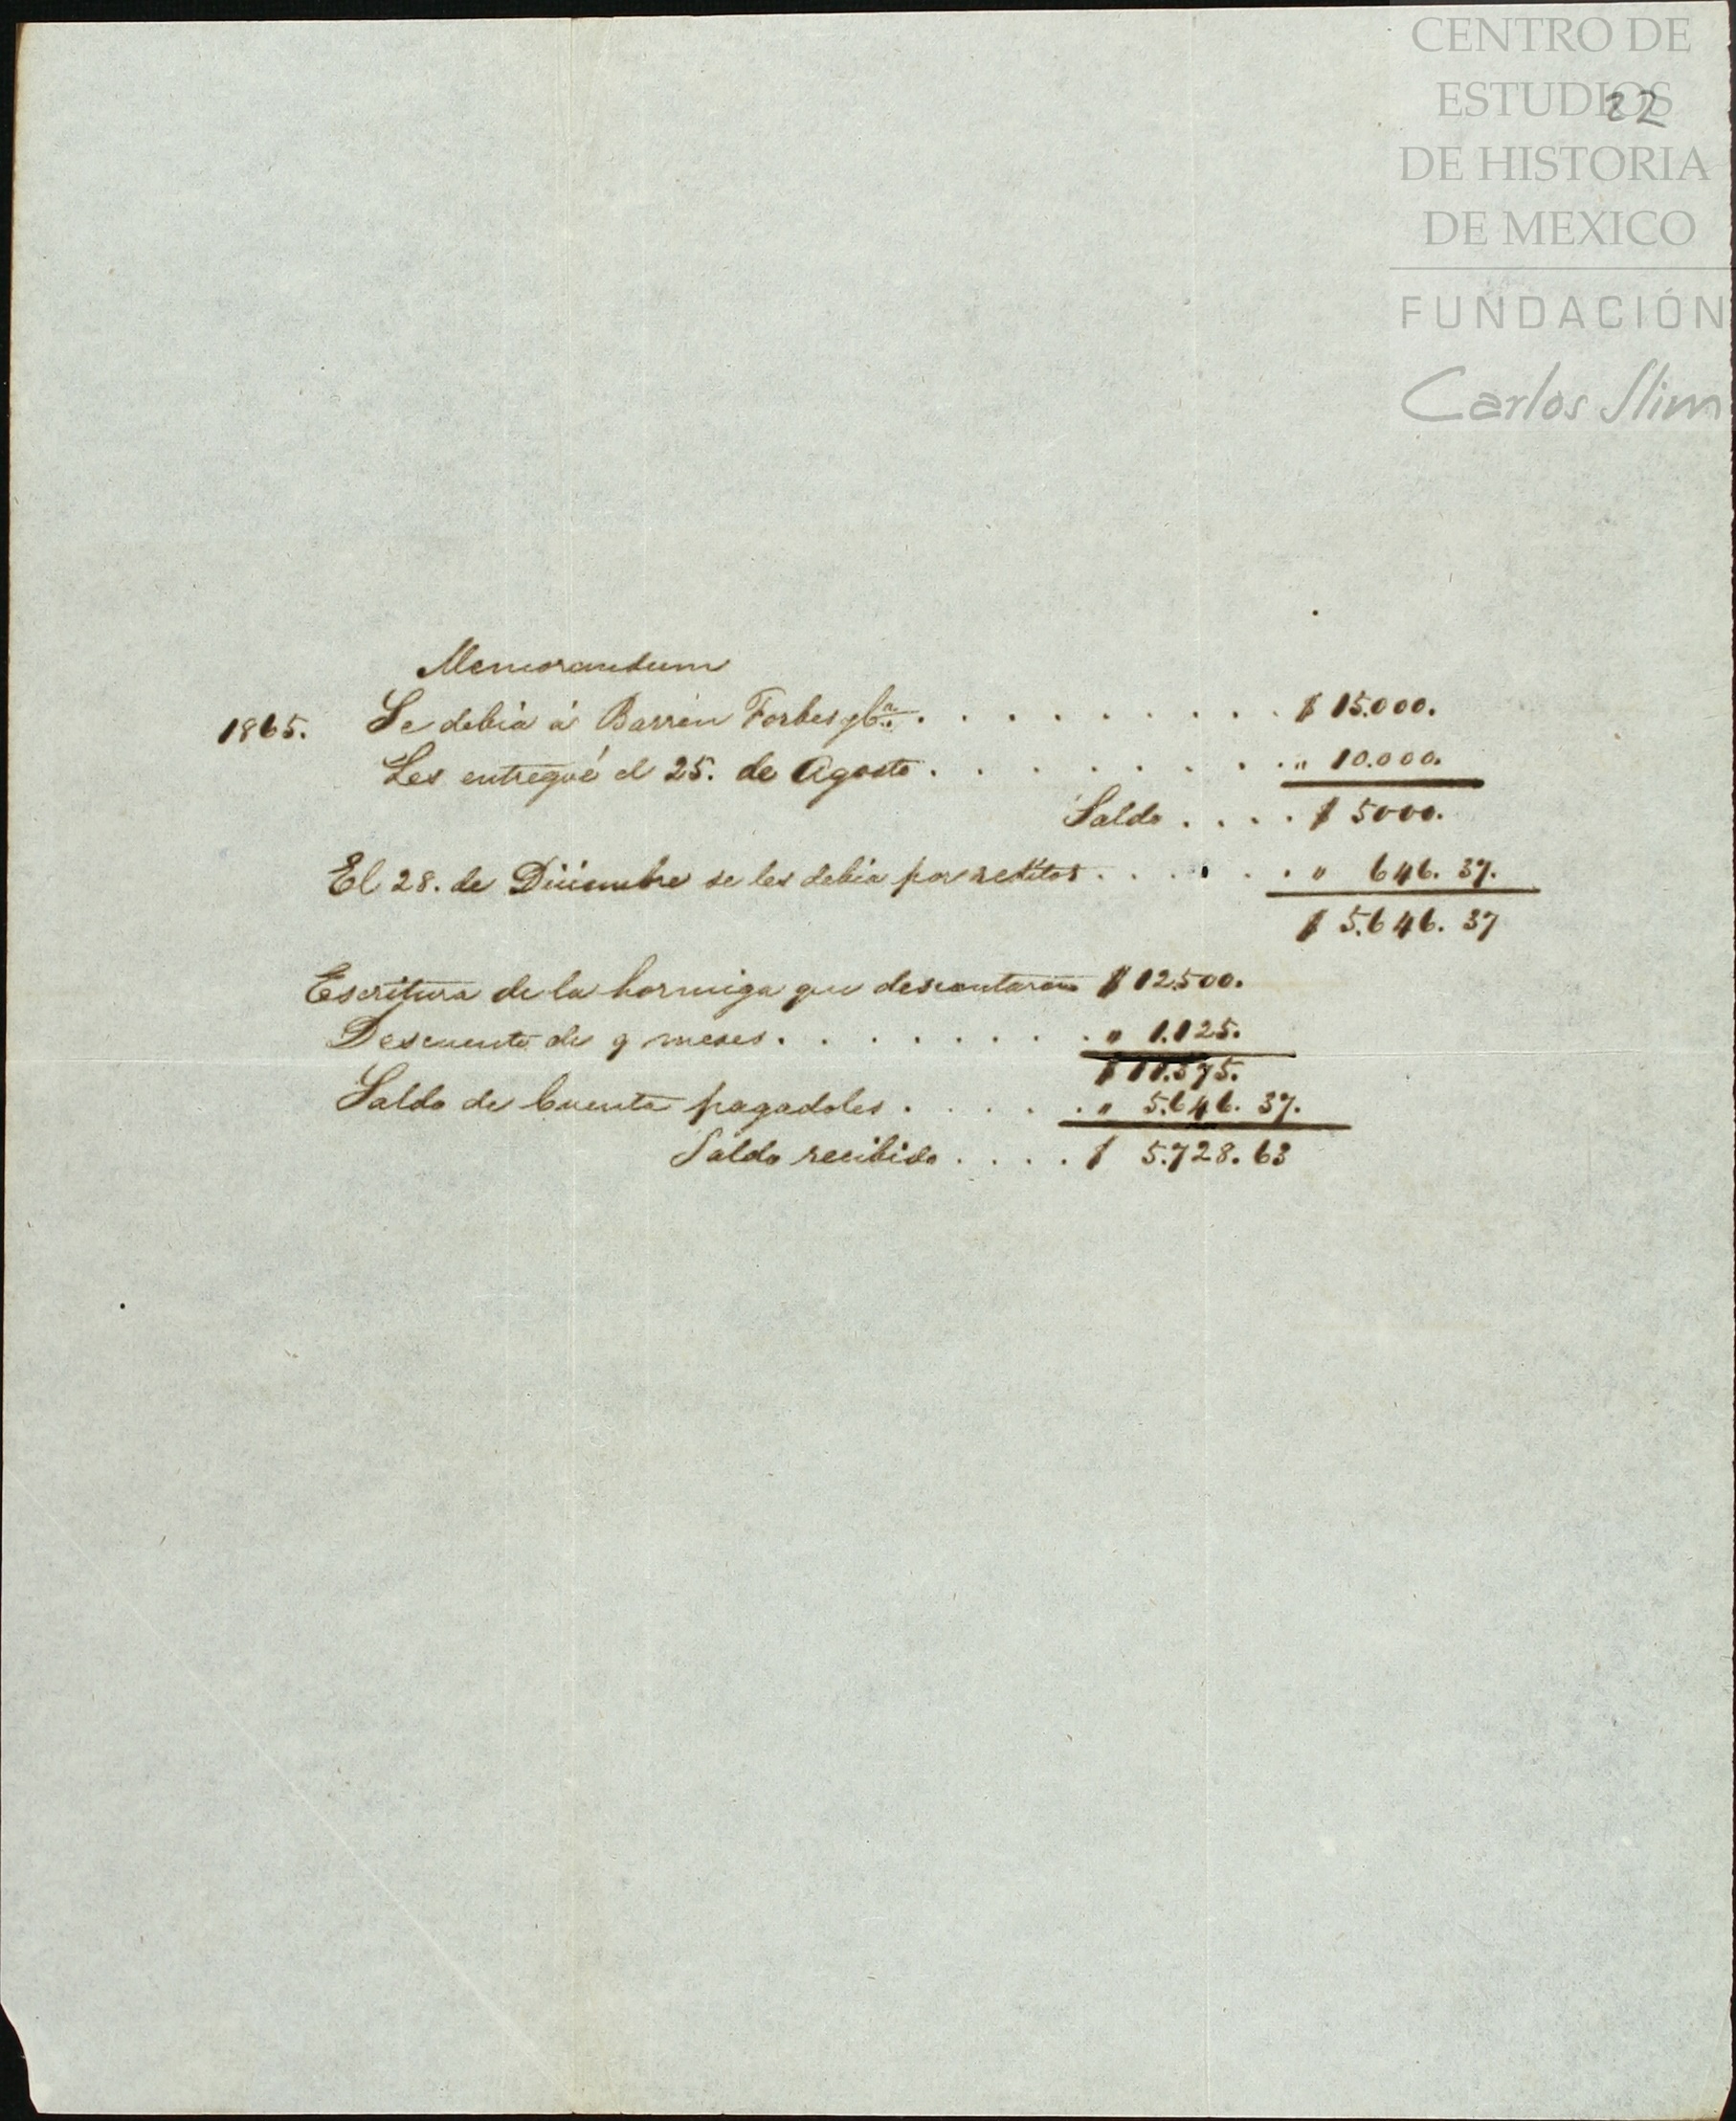 CENTRO DE
ESTUDIOS
22
DE HISTORIA
DE MEXICO
FUNDACIÓN
Carlos Slim
Memorandum
1865. Se debia á Barrón Forbes y Ca. . . . . . . . . . $ 15.000.
Les entregué el 25. de Agosto . . . . . . . . . " 10.000.
Saldo . . . . $ 5000.
El 28. de Diciembre se les debia por reditos . . . . . . " 646. 37.
$ 5.646. 37
Escritura de la hormiga que descontaron $ 12500.
Descuento de 9 meses . . . . . . . . " 1.125.
$ 11.375.
Saldo de Cuenta pagadoles . . . . . " 5.646. 37.
Saldo recibido . . . . $ 5.728. 63